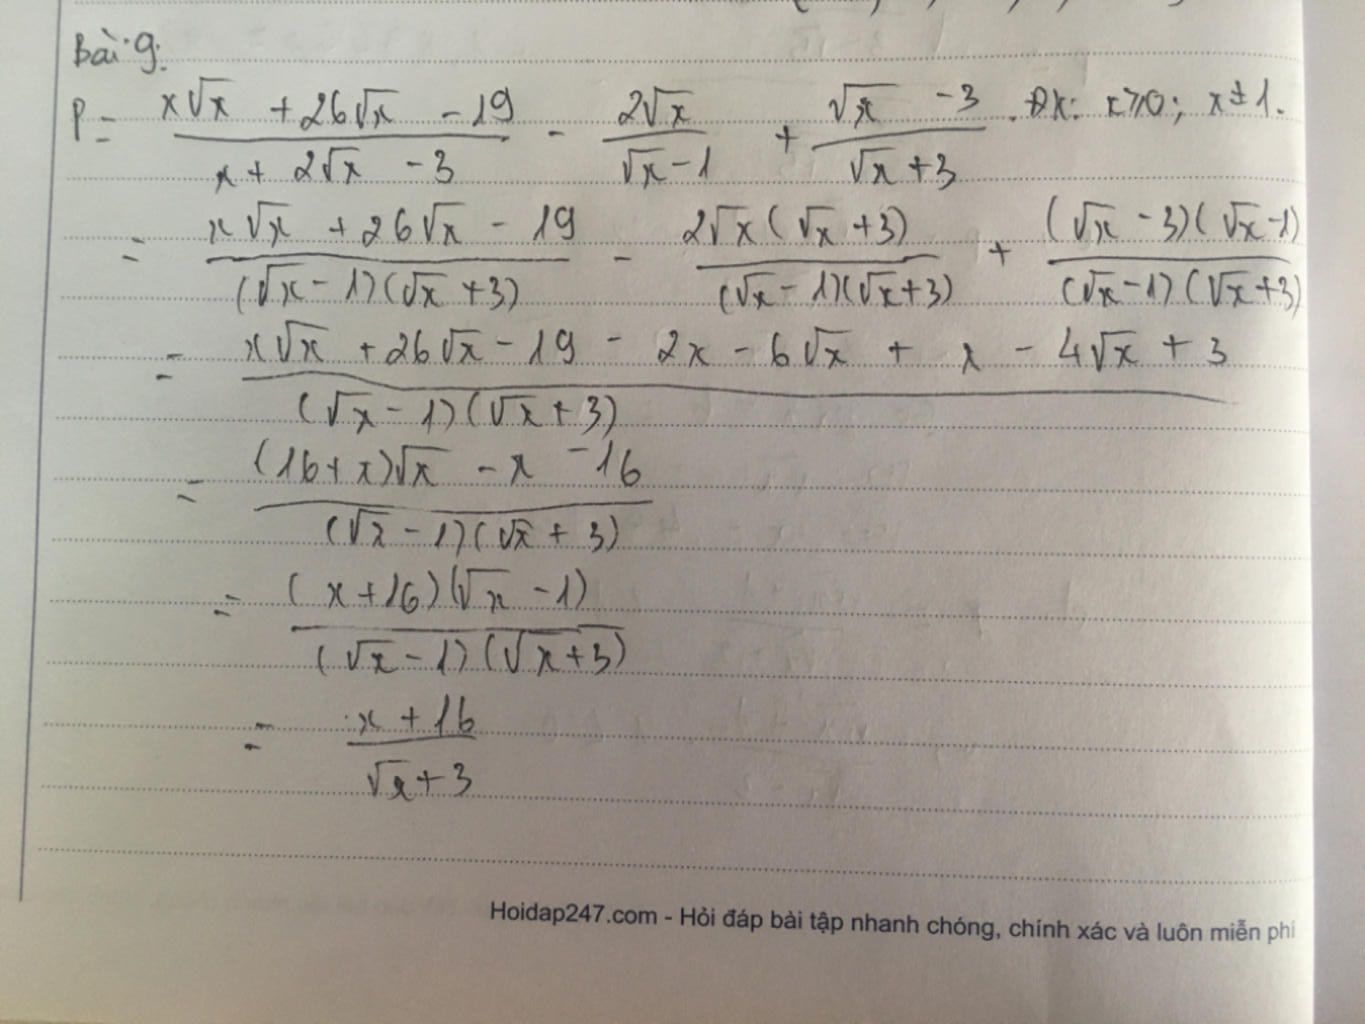 Bài 9.
P = \frac{x\sqrt{x} + 26\sqrt{x} - 19}{x + 2\sqrt{x} - 3} - \frac{2\sqrt{x}}{\sqrt{x} - 1} + \frac{\sqrt{x} - 3}{\sqrt{x} + 3} . ĐK: x ⩾ 0; x ≠ 1.
= \frac{x\sqrt{x} + 26\sqrt{x} - 19}{(\sqrt{x} - 1)(\sqrt{x} + 3)} - \frac{2\sqrt{x}(\sqrt{x} + 3)}{(\sqrt{x} - 1)(\sqrt{x} + 3)} + \frac{(\sqrt{x} - 3)(\sqrt{x} - 1)}{(\sqrt{x} - 1)(\sqrt{x} + 3)}
= \frac{x\sqrt{x} + 26\sqrt{x} - 19 - 2x - 6\sqrt{x} + x - 4\sqrt{x} + 3}{(\sqrt{x} - 1)(\sqrt{x} + 3)}
= \frac{(16 + x)\sqrt{x} - x - 16}{(\sqrt{x} - 1)(\sqrt{x} + 3)}
= \frac{(x + 16)(\sqrt{x} - 1)}{(\sqrt{x} - 1)(\sqrt{x + 3})}
= \frac{x + 16}{\sqrt{x} + 3}
Hoidap247.com - Hỏi đáp bài tập nhanh chóng, chính xác và luôn miễn phí